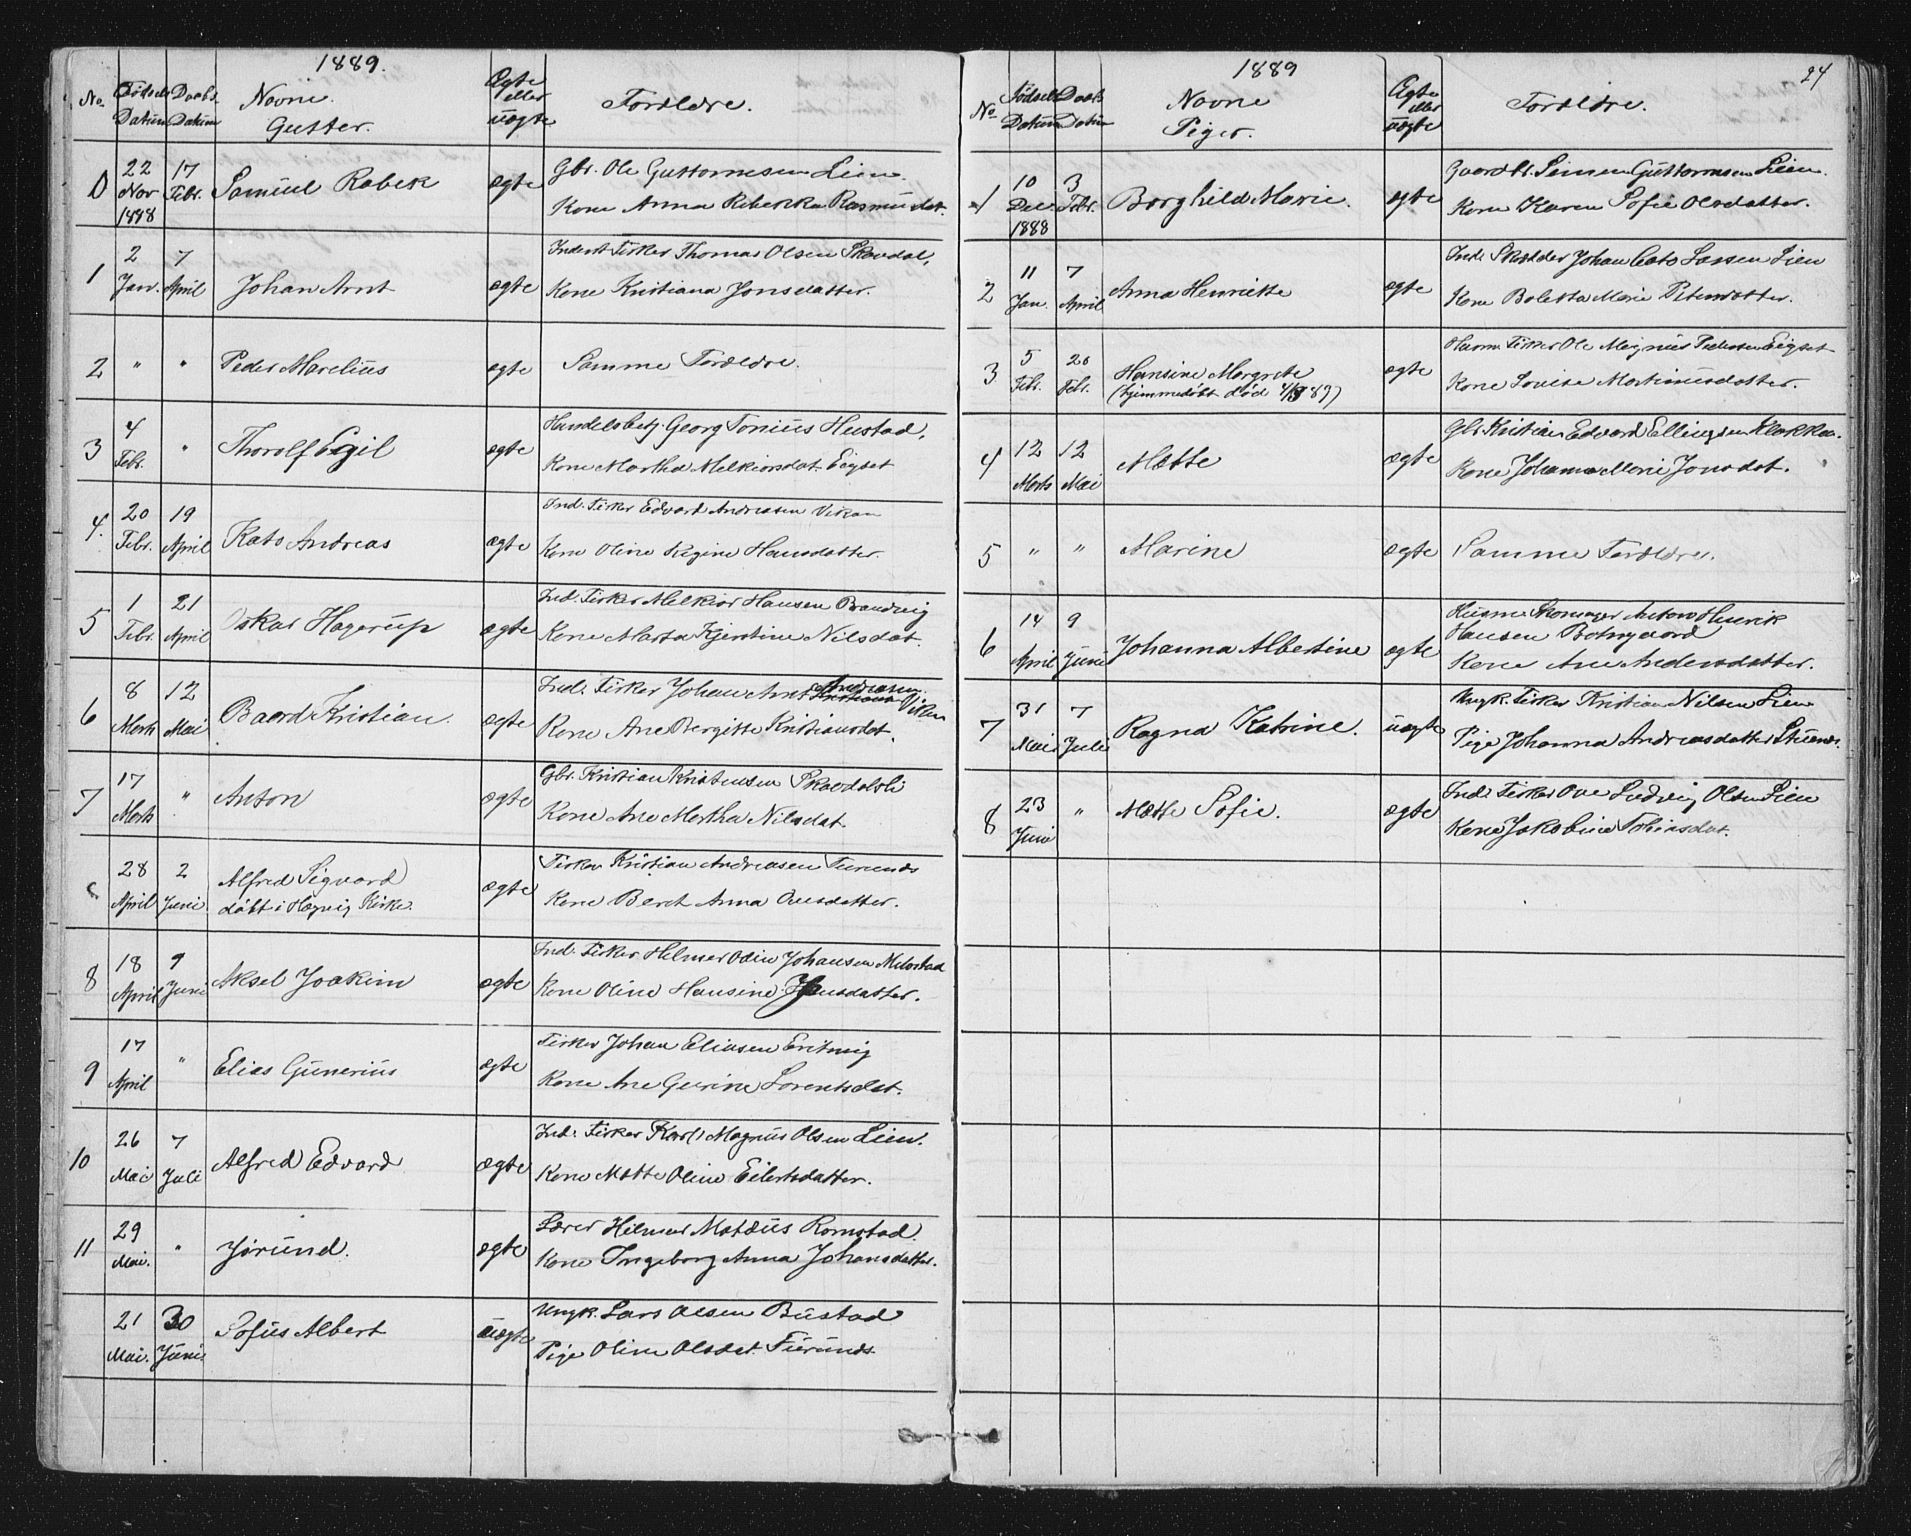 1889.
No. Fødsels Datum Daabs Datum Navne. Gutter. Ægte eller uægte Forældre.
0 22 Nov 1888 17 Febr. Samuel Rabek ægte Gbr. Ole Guttormsen Lien.
Kone Anna Rebekka Rasmusdat.
1 2 Jan. 7 April Johan Arnt ægte Inderst Fisker Thomas Olsen Skavdal.
Kone Kristiana Jonsdatter.
2 " " Peder Marelius ægte Samme Forældre.
3 4 Febr. " Thorolf Eigil ægte Handelsbetj. Georg Tonius Hustad.
Kone Martha Melkiorsdat. Eigset
4. 20 Febr. 19 April Kato Andreas ægte Ind. Fisker Edvard Andreasen Vikan
Kone Oline Regine Hansdatter.
5 1 Febr. 21 April Oskar Hagerup ægte Ind. Fisker Melkior Hansen Brandvig
Kone Marta Kjerstine Nilsdat.
6 8 Marts 12 Mai Baard Kristian. ægte Ind. Fisker Johan Arnt Andreasen Vikan
Kone Ane Bergitte Kristiansdat.
7 17 Marts " Anton ægte Gbr. Kristian Kristensen Skavdalsli
Kone Ane Martha Nilsdat.
28 April 2 Juni Alfred Sigvard ægte Fisker Kristian Andreasen Furunds
døbt i Hægvig Kirke. Kone Beret Anna Ousdatter.
8 18 April 9 Juni Aksel Joakim ægte Ind. Fisker Helmer Odin Johansen Melostad
Kone Oline Hansine Hansdatter.
9 17 April " Elias Gunerius ægte Fisker Johan Eliasen
Kone Ane Gurine Lorentsdat.
10 26 Mai 7 Juli Alfred Edvard ægte Ind. Fisker Karl Magnus Olsen Lien.
Kone Mette Oline Eilertsdatter.
11 29 Mai. " Jørund. ægte Lærer Hilmar Matæus Romstad.
Kone Ingeborg Anna Johansdatter.
21 Mai. 30 Juni Sofus Albert uægte Ungk. Lars Olsen Bustad
Pige Oline Olsdat. Furunds
1889
24
No. Fødsels Datum Daabs Datum Navne Piger. Ægte eller uægte Forældre.
1 10 Dec. 1888 3 Febr. Borghild Marie. ægte Gaardbr. Simen Guttormsen Lien.
Kone Karen Sofie Olsdatter.
2 11 Jan. 7 April Anna Henrikke ægte Ind. Skrædder Johan Cato Lassen Lien
Kone Boletta Marie Petersdatter.
3 5 Febr. 20 Febr. Hansine Margrete ægte Husm. Fisker Ole Magnus Pedersen Eigset
(hjemmedøbt død 4/3 89) Kone Lovise Martinusdatter.
4 12 Marts 12 Mai Mette ægte Gbr. Kristian Edvard Ellingsen Klokken.
Kone Johanna Marie Jonsdat.
5 " " Marine ægte Samme Forældre.
6 14 April 9 Juni Johanna Albertine ægte Husm. Skomager Anton Henrik
Hansen Botngaard
Kone Ane Andersdatter.
7 31 Mai 7 Juli Ragna Katrine. uægte Ungk. Fisker Kristian Nilsen Lien
Pige Johanna Andreasdatter
8 23 Juni " Mette Sofie. ægte Ind. Fisker Ove Ludvig Olsen Lien
Kone Jakobine Tobiasdat.